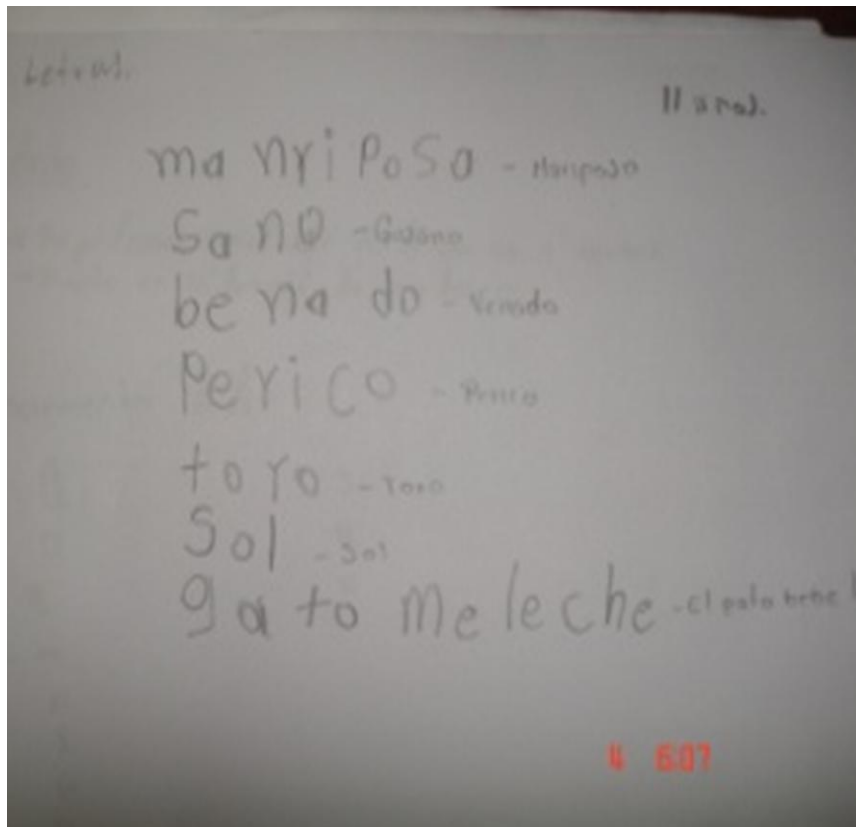 letras.
ma nri PoSa - Mariposa
Sa no - Gusano
be na do - Venado
Perico - Perico
toro - Toro
Sol - Sol
ga to me leche - el gato bebe l
4 6:07